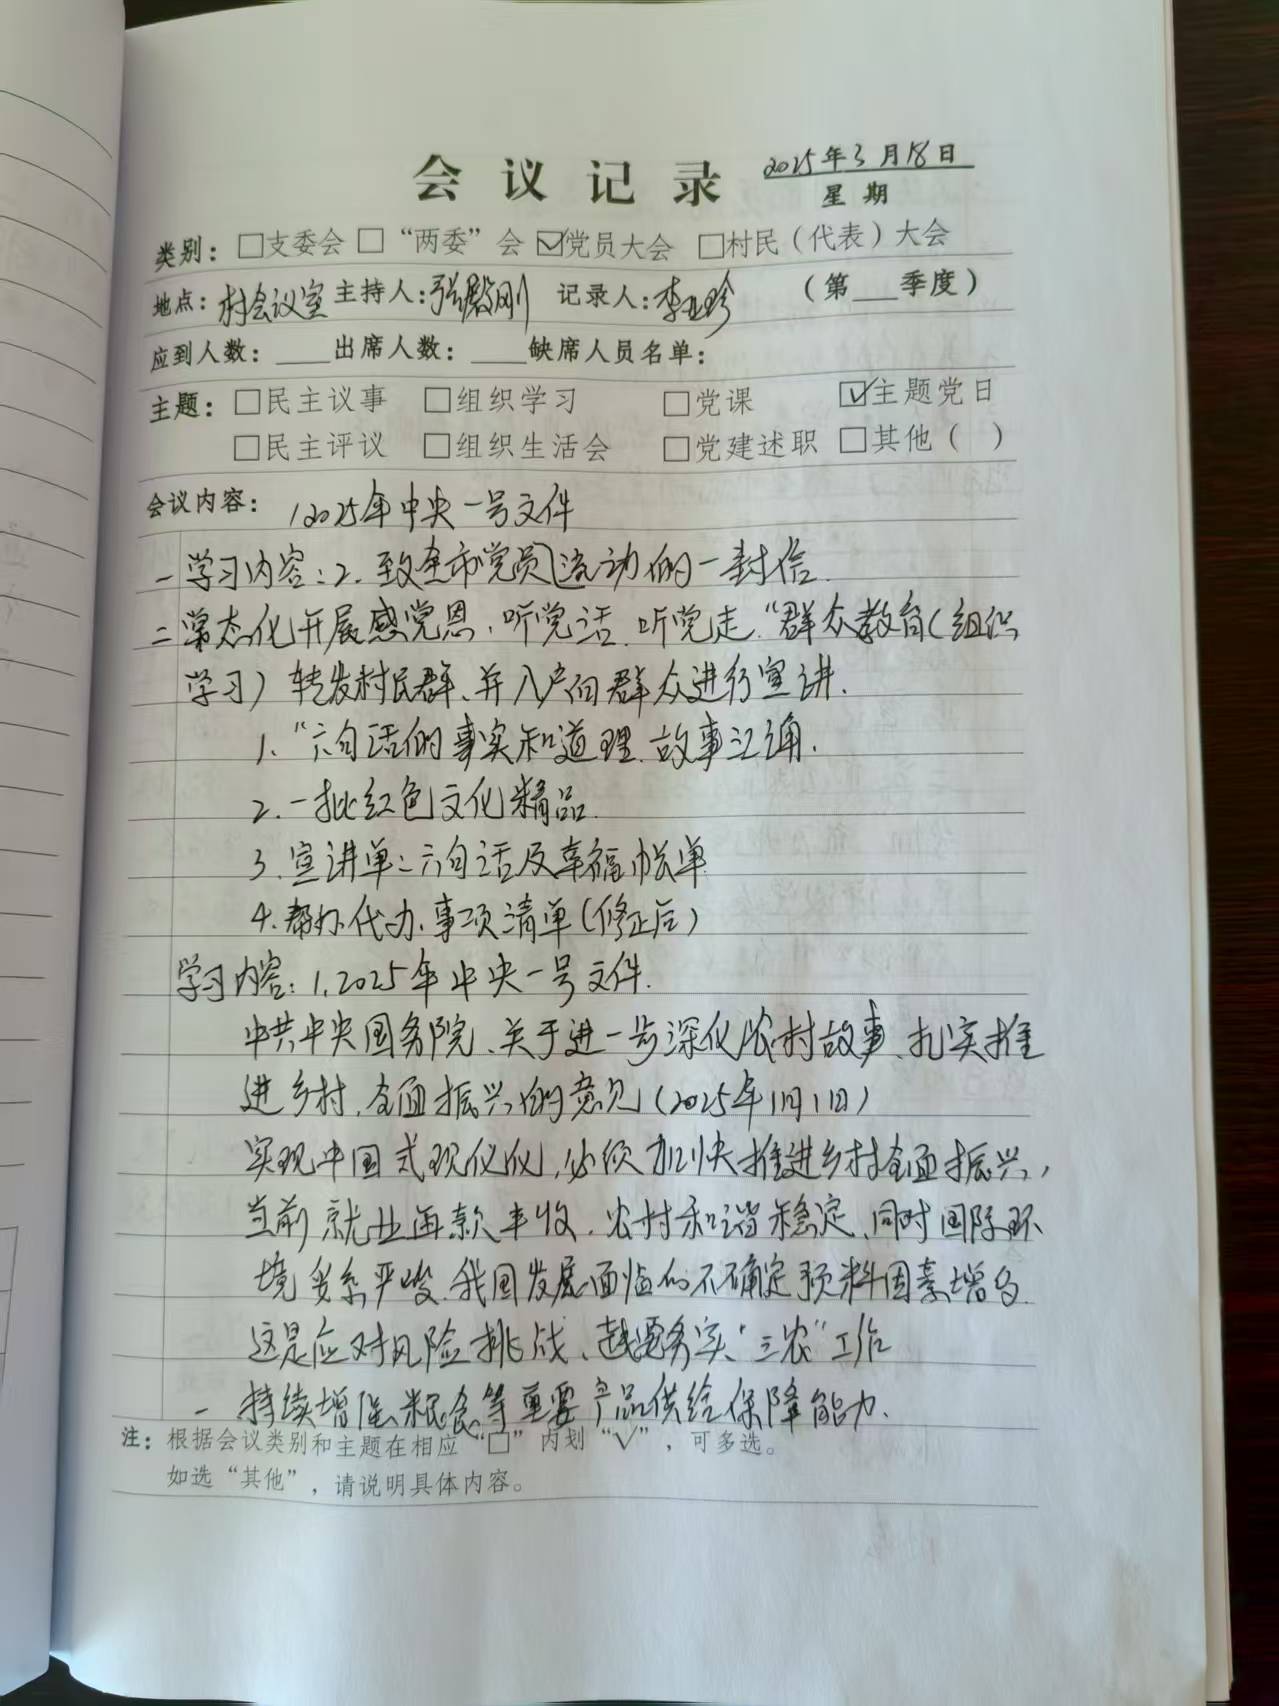 会议记录 2025年3月18日
星期
类别：□支委会 □“两委”会 ☑党员大会 □村民（代表）大会
地点：村会议室 主持人：张殿刚 记录人：李亚珍 （第___季度）
应到人数：____出席人数：____缺席人员名单：
主题：□民主议事 □组织学习 □党课 ☑主题党日
□民主评议 □组织生活会 □党建述职 □其他（ ）
会议内容： 1 2025年中央一号文件
一 学习内容：2. 致全市党员流动的一封信.
二 常态化开展感党恩、听党话、听党走.“群众教育（组织
学习）转发村民群、并入户向群众进行宣讲.
1. “六句话的事实和道理.故事汇通.
2. 一批红色文化精品.
3. 宣讲单：六句话及幸福帐单
4. 帮办代办、事项清单（修正后）
学习内容：1. 2025年中央一号文件.
中共中央国务院、关于进一步深化农村故事、扎实推
进乡村、全面振兴的意见（2025年1月1日）
实现中国式现代化，必须加快推进乡村全面振兴，
当前 就业再款丰收．农村和谐稳定、同时国际环
境 严峻．我国发展面临的不确定预料因素增多．
这是应对风险挑战、越要务实“三农”工作
一 持续增强粮食等重要产品供给保障能力.
注：根据会议类别和主题在相应“□”内划“√”，可多选。
如选“其他”，请说明具体内容。